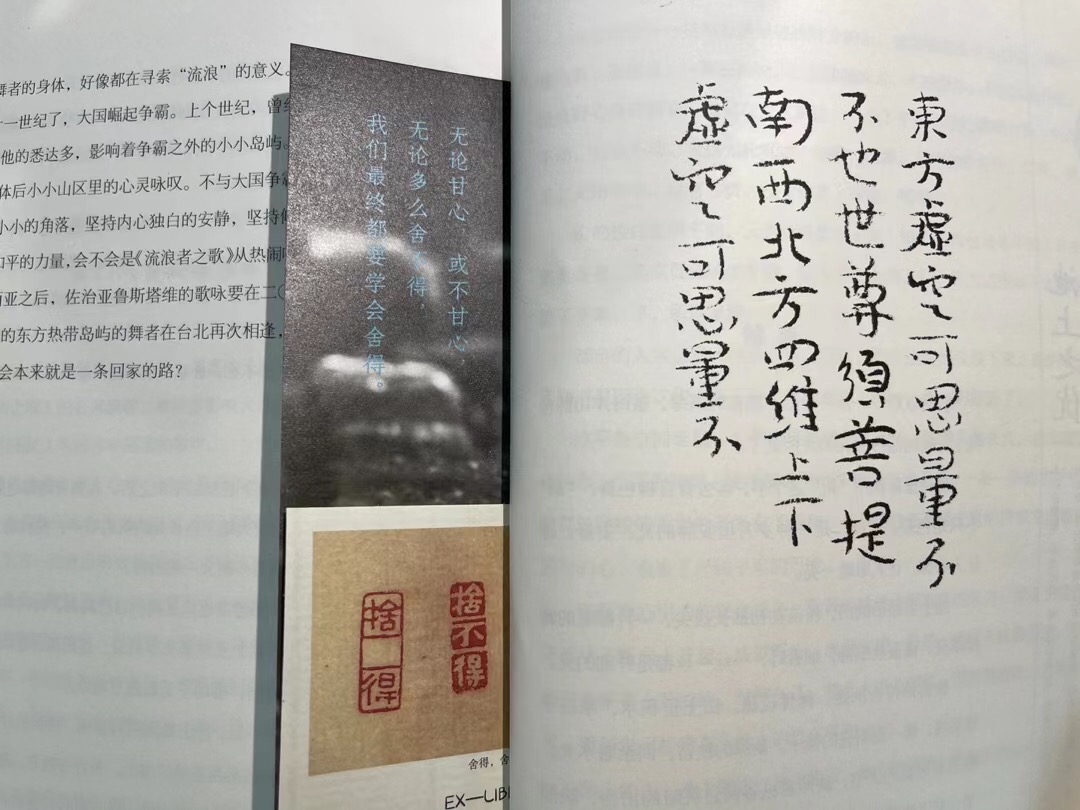 舞者的身体，好像都在寻索“流浪”的意义。
一世纪了，大国崛起争霸。上个世纪，曾经
他的悉达多，影响着争霸之外的小小岛屿。
体后小小山区里的心灵咏叹。不与大国争
小小的角落，坚持内心独白的安静，坚持
和平的力量，会不会是《流浪者之歌》从热闹
西亚之后，佐治亚鲁斯塔维的歌咏要在二〇
的东方热带岛屿的舞者在台北再次相逢，
会本来就是一条回家的路？
无论甘心，或不甘心，
无论多么舍不得
我们最终都要学会舍得。
捨不得
捨得
舍得，舍
EX—LIB
東方虛空可思量不
不也世尊須菩提
南西北方四維上下
虛空可思量不